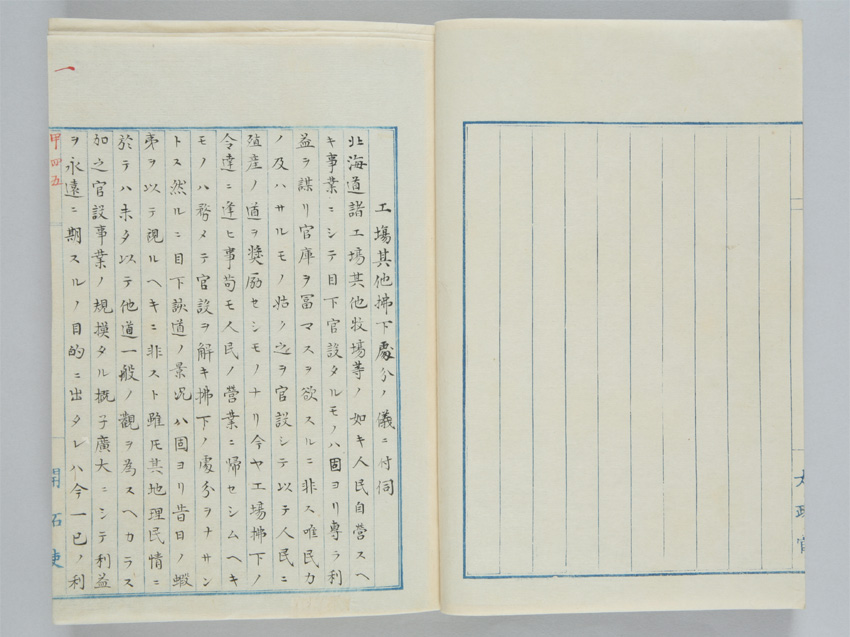 太政官
工場其他拂下處分ノ儀ニ付伺
北海道諸工場其他牧場等ノ如キ人民自營スヘ
キ事業ニシテ目下官設タルモノハ固ヨリ專ラ利
益ヲ謀リ官庫ヲ冨マスヲ欲スルニ非ス唯民力
ノ及ハサルモノ姑ク之ヲ官設シテ以テ人民ニ
殖産ノ道ヲ奬励セシモノナリ今ヤ工場拂下ノ
令達ニ逢ヒ事苟モ人民ノ營業ニ帰セシムヘキ
モノハ務メテ官設ヲ解キ拂下ノ處分ヲナサン
トス然ルニ目下該道ノ景況ハ固ヨリ昔日ノ蝦
夷ヲ以テ視ルヘキニ非スト雖モ其地理民情ニ
於テハ未タ以テ他道一般ノ觀ヲ為スヘカラス
加之官設事業ノ規摸タル概子廣大ニシテ利益
ヲ永遠ニ期スルノ目的ニ出タレハ今一已ノ利
一
甲四五
開拓使